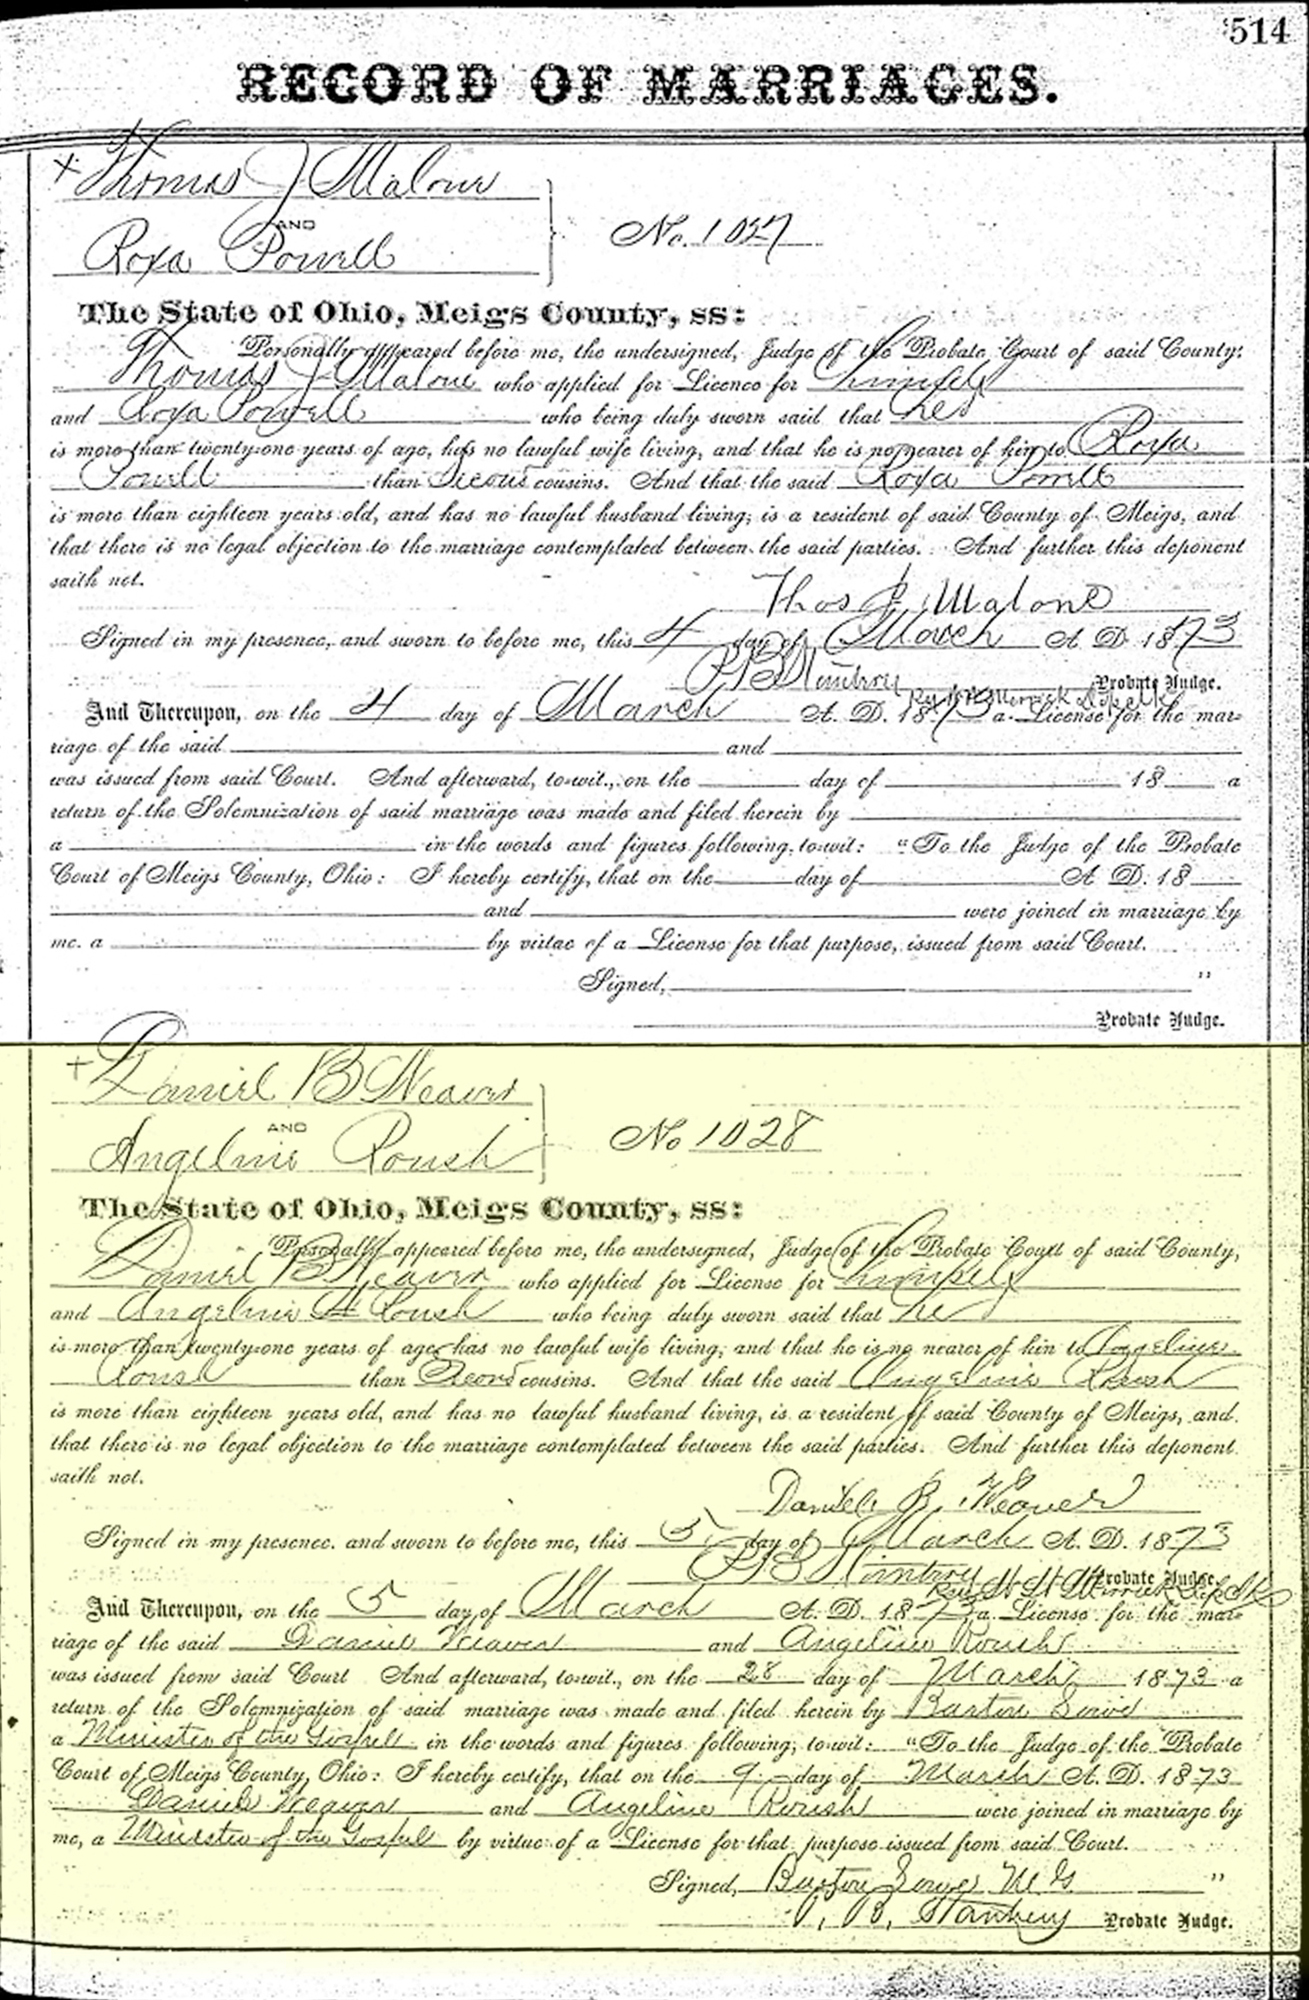 514
RECORD OF MARRIAGES.
Thomas J Malone
AND
Roxa Powell
No. 1027
The State of Ohio, Meigs County, ss:
Personally appeared before me, the undersigned, Judge of the Probate Court of said County;
Thomas J Malone who applied for Licence for himself
and Roxa Powell who being duly sworn said that he
is more than twenty-one years of age, has no lawful wife living, and that he is no nearer of kin to Roxa
Powell than Second cousins. And that the said Roxa Powell
is more than eighteen years old, and has no lawful husband living; is a resident of said County of Meigs, and
that there is no legal objection to the marriage contemplated between the said parties. And further this deponent
saith not.
Thos J. Malone
Signed in my presence, and sworn to before me, this 4 day of March A. D. 1873
Probate Judge.
And Thereupon, on the 4 day of March A. D. 187 a License for the mar-
riage of the said and
was issued from said Court. And afterward, to-wit., on the day of 18 a
return of the Solemnization of said marriage was made and filed herein by
a in the words and figures following, to-wit: "To the Judge of the Probate
Court of Meigs County, Ohio: I hereby certify, that on the day of A. D. 18
and were joined in marriage by
me. a by virtue of a License for that purpose, issued from said Court.
Signed, "
Probate Judge.
Daniel B Weaver
AND
Angeline Roush
No 1028
The State of Ohio, Meigs County, ss:
Personally appeared before me, the undersigned, Judge of the Probate Court of said County,
Daniel B Weaver who applied for License for himself
and Angeline Roush who being duly sworn said that he
is more than twenty-one years of age, has no lawful wife living; and that he is no nearer of kin to Angeline
Roush than Second cousins. And that the said Angeline Roush
is more than eighteen years old, and has no lawful husband living, is a resident of said County of Meigs, and
that there is no legal objection to the marriage contemplated between the said parties. And further this deponent
saith not.
Daniel B. Weaver
Signed in my presence. and sworn to before me, this 5 day of March A. D. 1873
Probate Judge
And Thereupon, on the 5 day of March A. D. 1873 a License for the mar-
riage of the said Daniel Weaver and Angeline Roush
was issued from said Court And afterward, to-wit., on the 28 day of March 1873 a
return of the Solemnization of said marriage was made and filed herein by
a Minister of the Gospel in the words and figures following; to-wit: "To the Judge of the Probate
Court of Meigs County, Ohio: I hereby certify, that on the 9 day of March A. D. 1873
Daniel Weaver and Angeline Roush were joined in marriage by
me, a Minister of the Gospel by virtue of a License for that purpose issued from said Court.
Signed, M. G. "
Probate Judge.